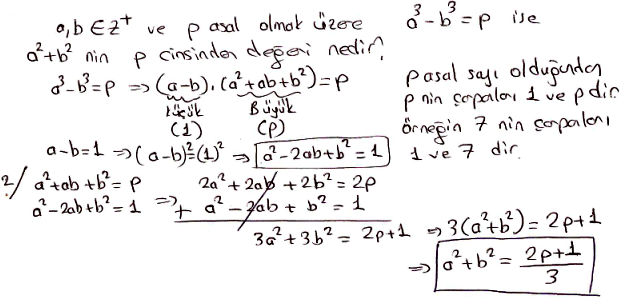 a,b ∈ Z⁺ ve p asal olmak üzere a³-b³=p ise
a²+b² nin p cinsinden değeri nedir?
a³-b³=p ⇒ (a-b).(a²+ab+b²)=p
küçük Büyük
(1) (p)
p asal sayı olduğundan
p nin çarpaları 1 ve p dir.
Örneğin 7 nin çarpaları
1 ve 7 dir.
a-b=1 ⇒ (a-b)²=(1)² ⇒ a²-2ab+b²=1
2/ a²+ab+b²=p
a²-2ab+b²=1 ⇒
2a²+2ab+2b²=2p
+ a²-2ab+b²=1
3a²+3b²=2p+1 ⇒ 3(a²+b²)=2p+1
⇒ a²+b²=(2p+1)/3